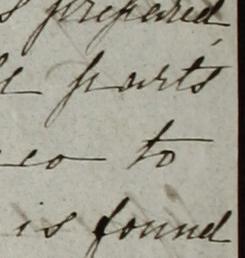 prepared,
parts
to
is found